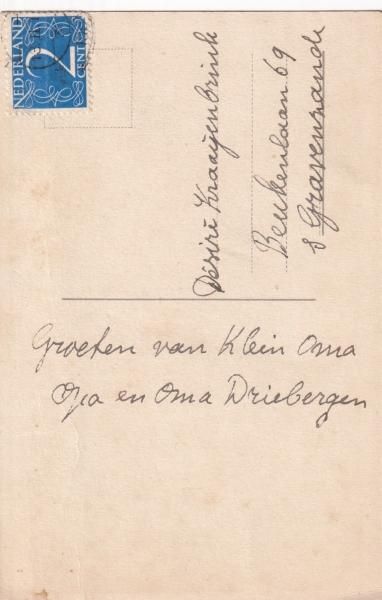 NEDERLAND
2
CENT
Désiré Kraayenbrink
Beukenlaan 69
s Gravenzande
Groeten van Klein Oma
Opa en Oma Driebergen